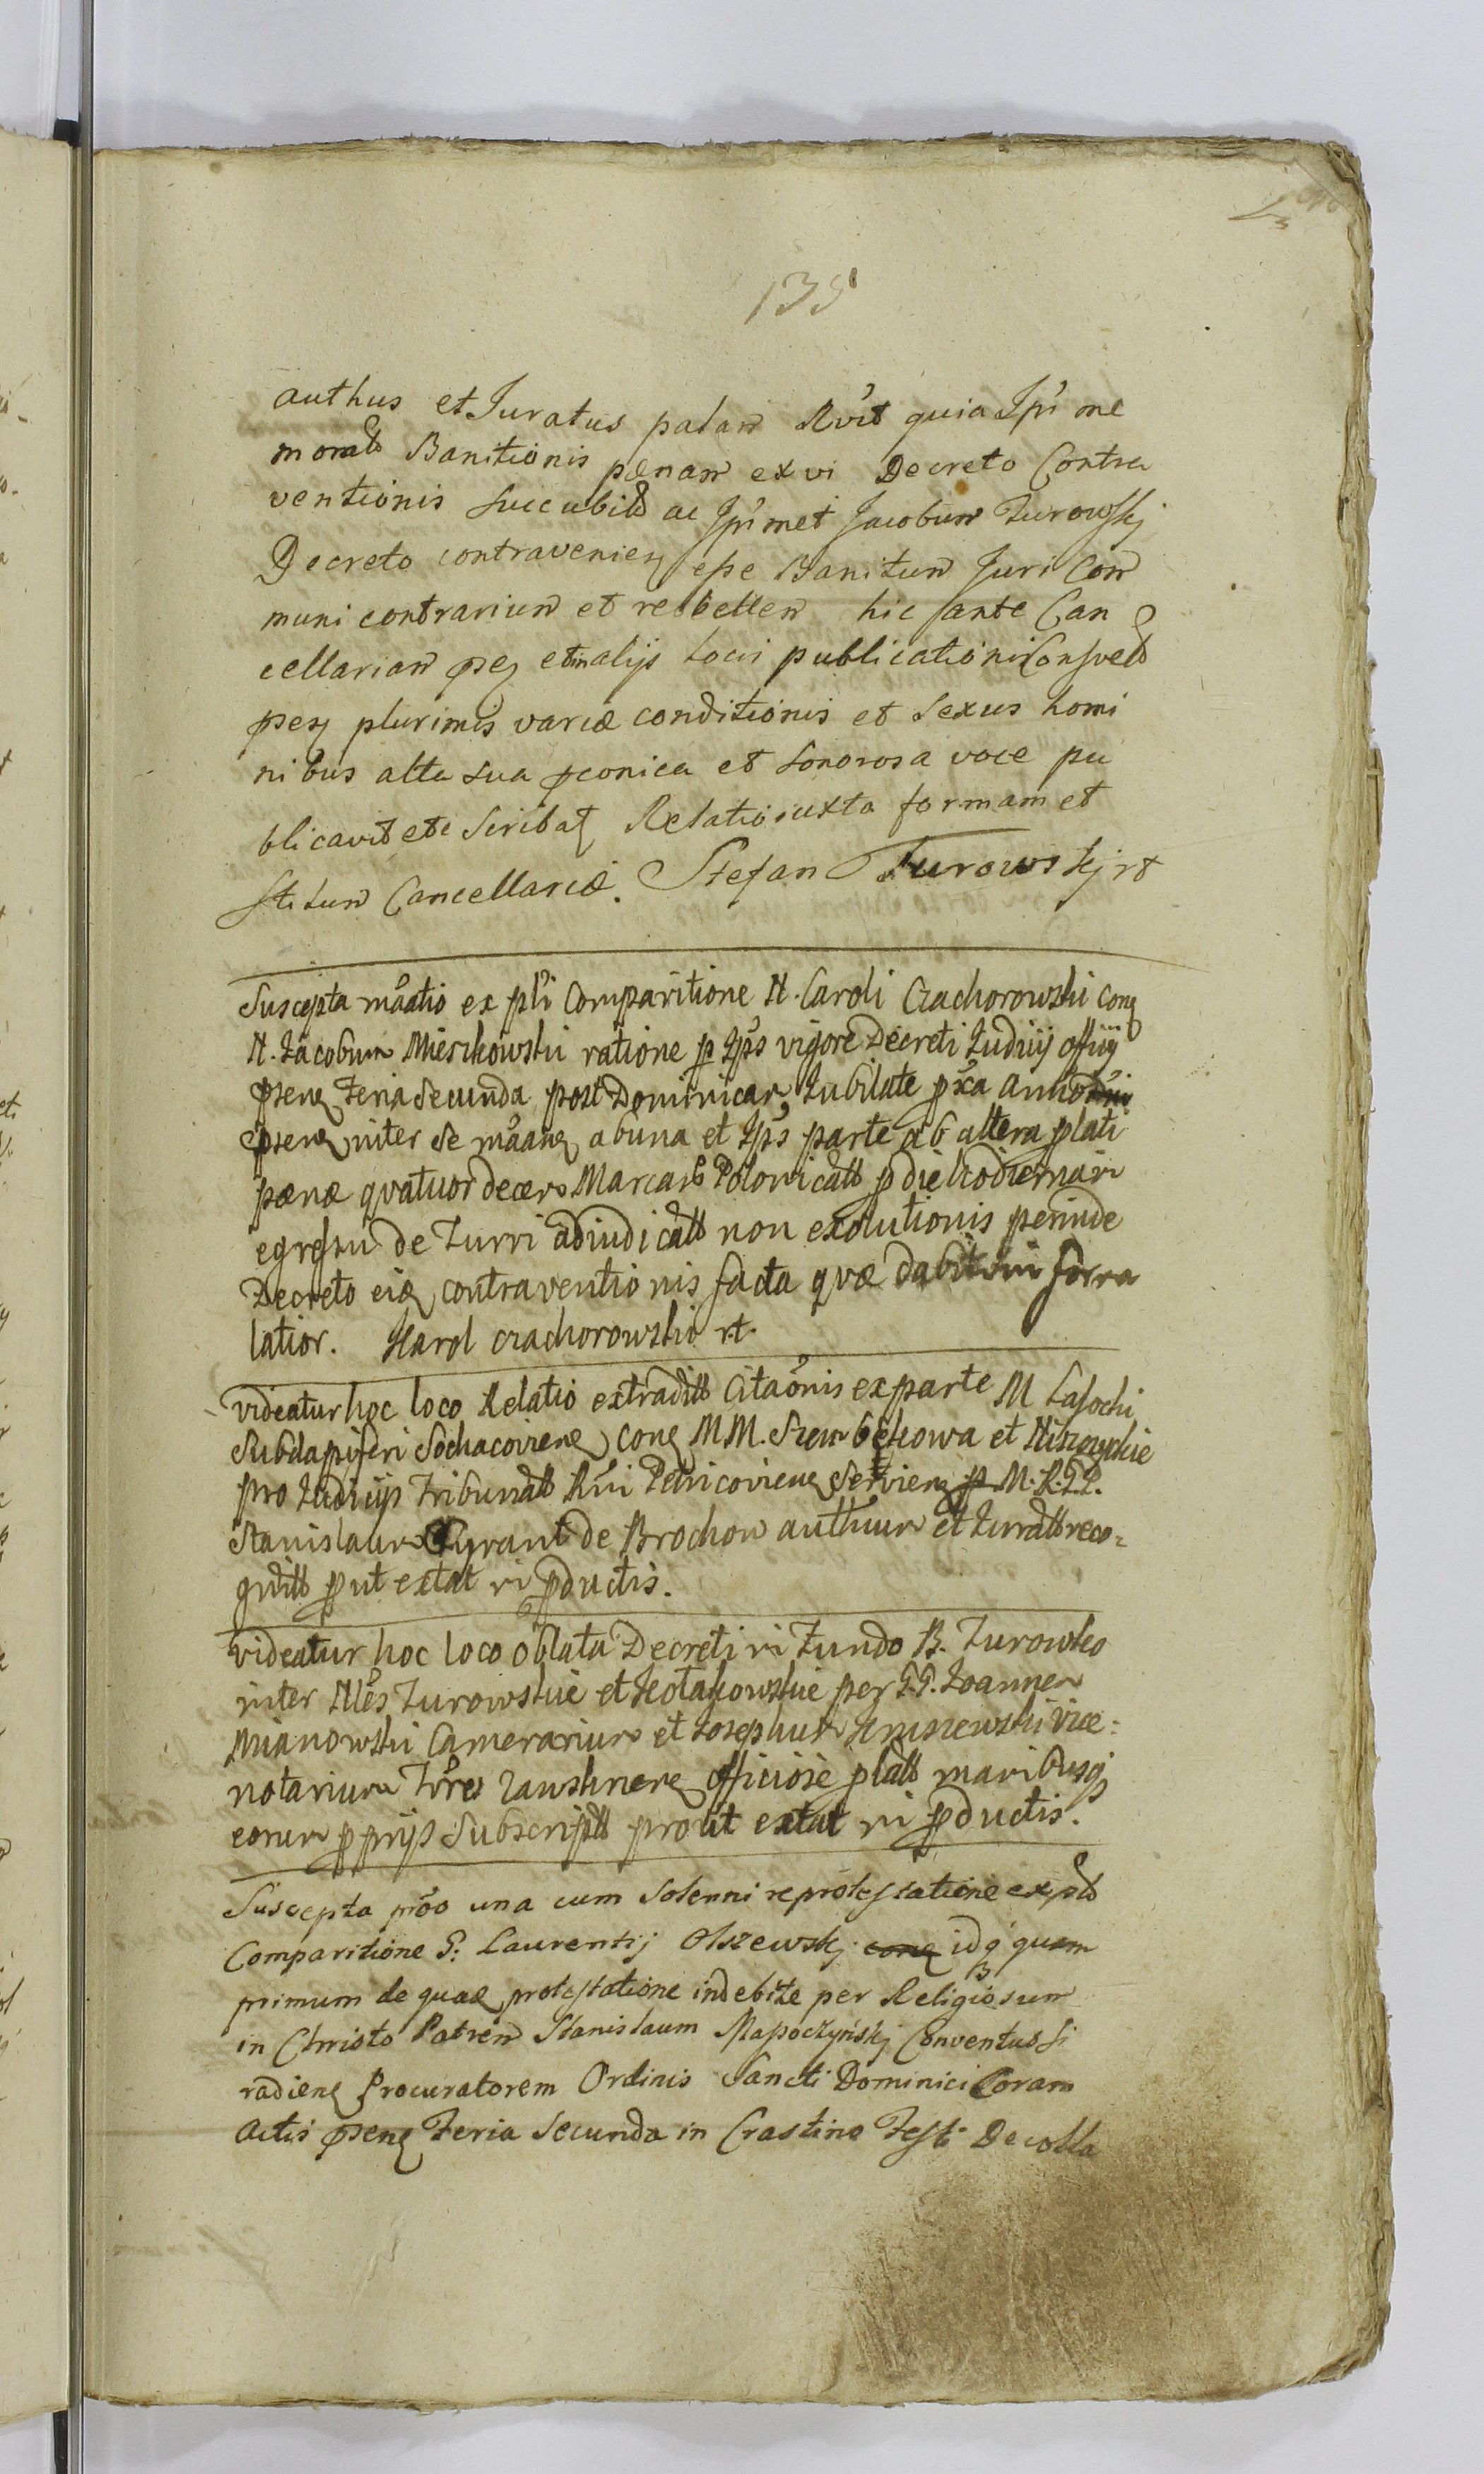 135
authus et Juratus palam Rvit quia Ipī me
morato Banitionis pænam ex vi Decreto Contra
ventionis succubito ac Ipīmet Jacobum Turowskj
Decreto contravenien esse Banitum Juri Com
muni contrarium et rebellem hic ante Can
cellariam pñ et in alijs Locis publicationi Consveto
pñ plurimis variæ conditionis et sexus homi
nibus alta sua præconica et sonorosa voce pu
blicavit etc Scribat Relatio iuxta formam et
stilum Cancellariæ. Stefan Turowskj rt
Suscepta mãatio ex pli Comparitione N. Caroli Czachorowski con
N. Jacobum Mieszkowski ratione p Ips vigore Decreti Judicij offij
psen Feria Secunda post Dominicam Jubilate pxa
psen inter se mãan ab una et Ips parte ab altera plati
pænæ qvatuordecem Marcas Polonicalb p die hodiernam
egressu de Turri adiudicalb non exolutionis perinde
Decreto eiq contraventionis facta qvæ dabitur in forma
latior. Karol Czachorowski rt.
videatur hoc loco Relatio extradito Citaõnis ex parte M Lasochi
Subdapiferi Sochacovien con MM. Szembekowa et
pro Judicijs Tribunalb Rni Petricovien Servien p M.R.
Stanislaum Tyrant de Brochow authum et Juratto reco=
gnito put extat in pductis.
videatur hoc loco Oblata Decreti in Fundo B. Turowsko
inter Nles Turowskie et per GG. Joannem
Mianowski Camerarium et Josephum vice=
notarium Trres Rawsknen officiose plato manibusq
eorum pprijs Subscripto prout extat in pductis.
Suscepta prõo una cum Solenni reprotestatione ex plb
Comparitione G: Laurentij Olszewskj idq quam
primum de quaq protestatione indebite per Religiosum
in Christo Patrem Stanislaum Conventus Si
radien Procuratorem Ordinis Sancti Dominici Coram
Actis psen Feria Secunda in Crastino Festi Decolla